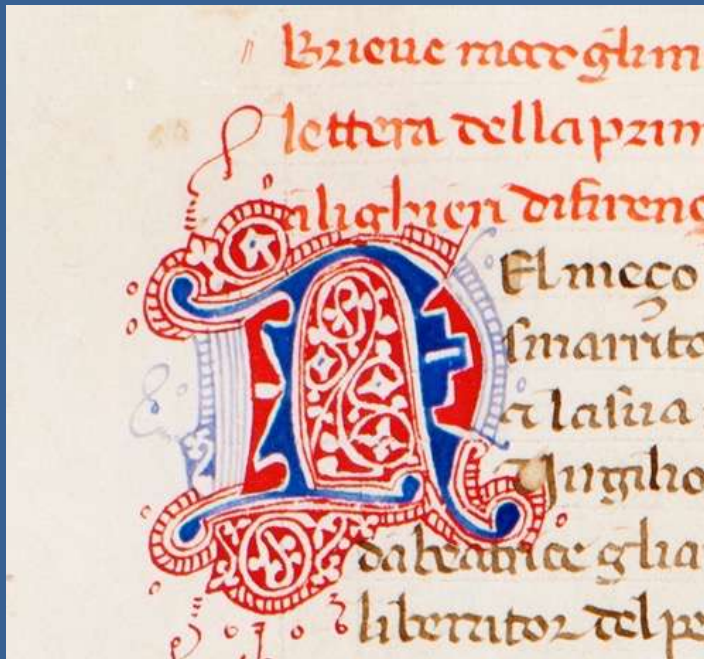 Brieue racoglim
lettera della prim
alighieri di firenç
N El meço
smarrito
a la sua
Virgilio
da beatrice glia
liberator del pe